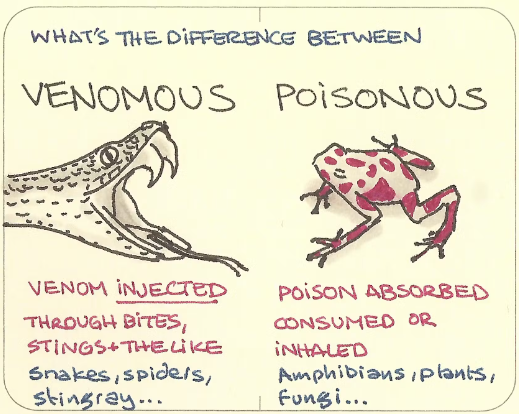 WHAT'S THE DIFFERENCE BETWEEN
VENOMOUS
VENOM INJECTED
THROUGH BITES,
STINGS + THE LIKE
Snakes, spiders,
stingray...
POISONOUS
POISON ABSORBED
CONSUMED OR
INHALED
Amphibians, plants,
Fungi...